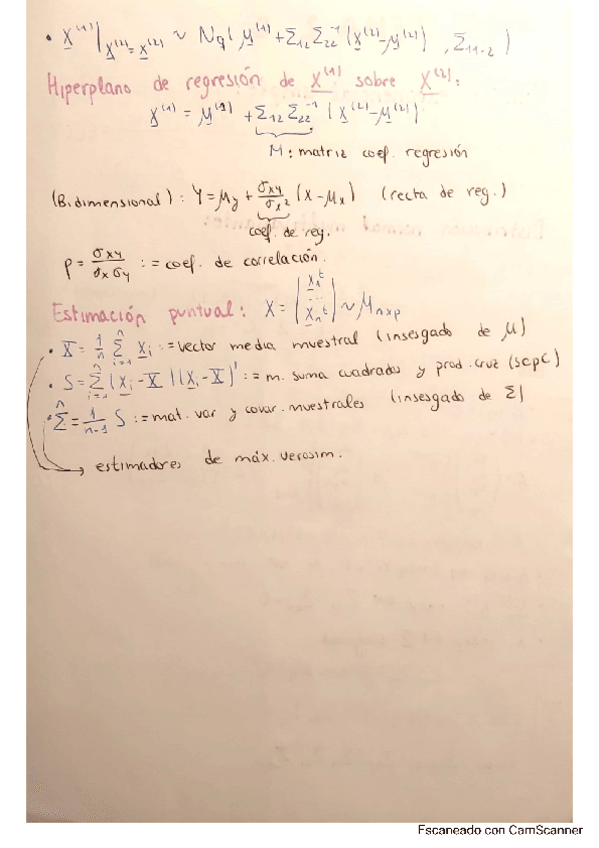 • X⁽¹⁾|X⁽²⁾=x⁽²⁾ ~ Nq( μ⁽¹⁾+Σ₁₂Σ₂₂⁻¹ (x⁽²⁾-μ⁽²⁾) , Σ₁₁·₂ )
Hiperplano de regresión de X⁽¹⁾ sobre X⁽²⁾:
X⁽¹⁾ = μ⁽¹⁾ + Σ₁₂ Σ₂₂⁻¹ (X⁽²⁾-μ⁽²⁾)
M: matriz coef. regresión
(Bidimensional): Y=μy + σxy/σx² (X-μx) (recta de reg.)
coef. de reg.
ρ = σxy/σxσy := coef. de correlación.
Estimación puntual: X = (X₁ᵗ ... Xₙᵗ) ~ Mₙₓₚ
• X̄ = 1/n Σᵢ₌₁ⁿ Xᵢ := vector media muestral (insesgado de μ)
• S = Σᵢ₌₁ⁿ (Xᵢ-X̄)(Xᵢ-X̄)' := m. suma cuadrados y prod. cruz (SCPC)
• Σ̂ = 1/n-1 S := mat. var y covar. muestrales (insesgado de Σ)
→ estimadores de máx. verosim.
Escaneado con CamScanner